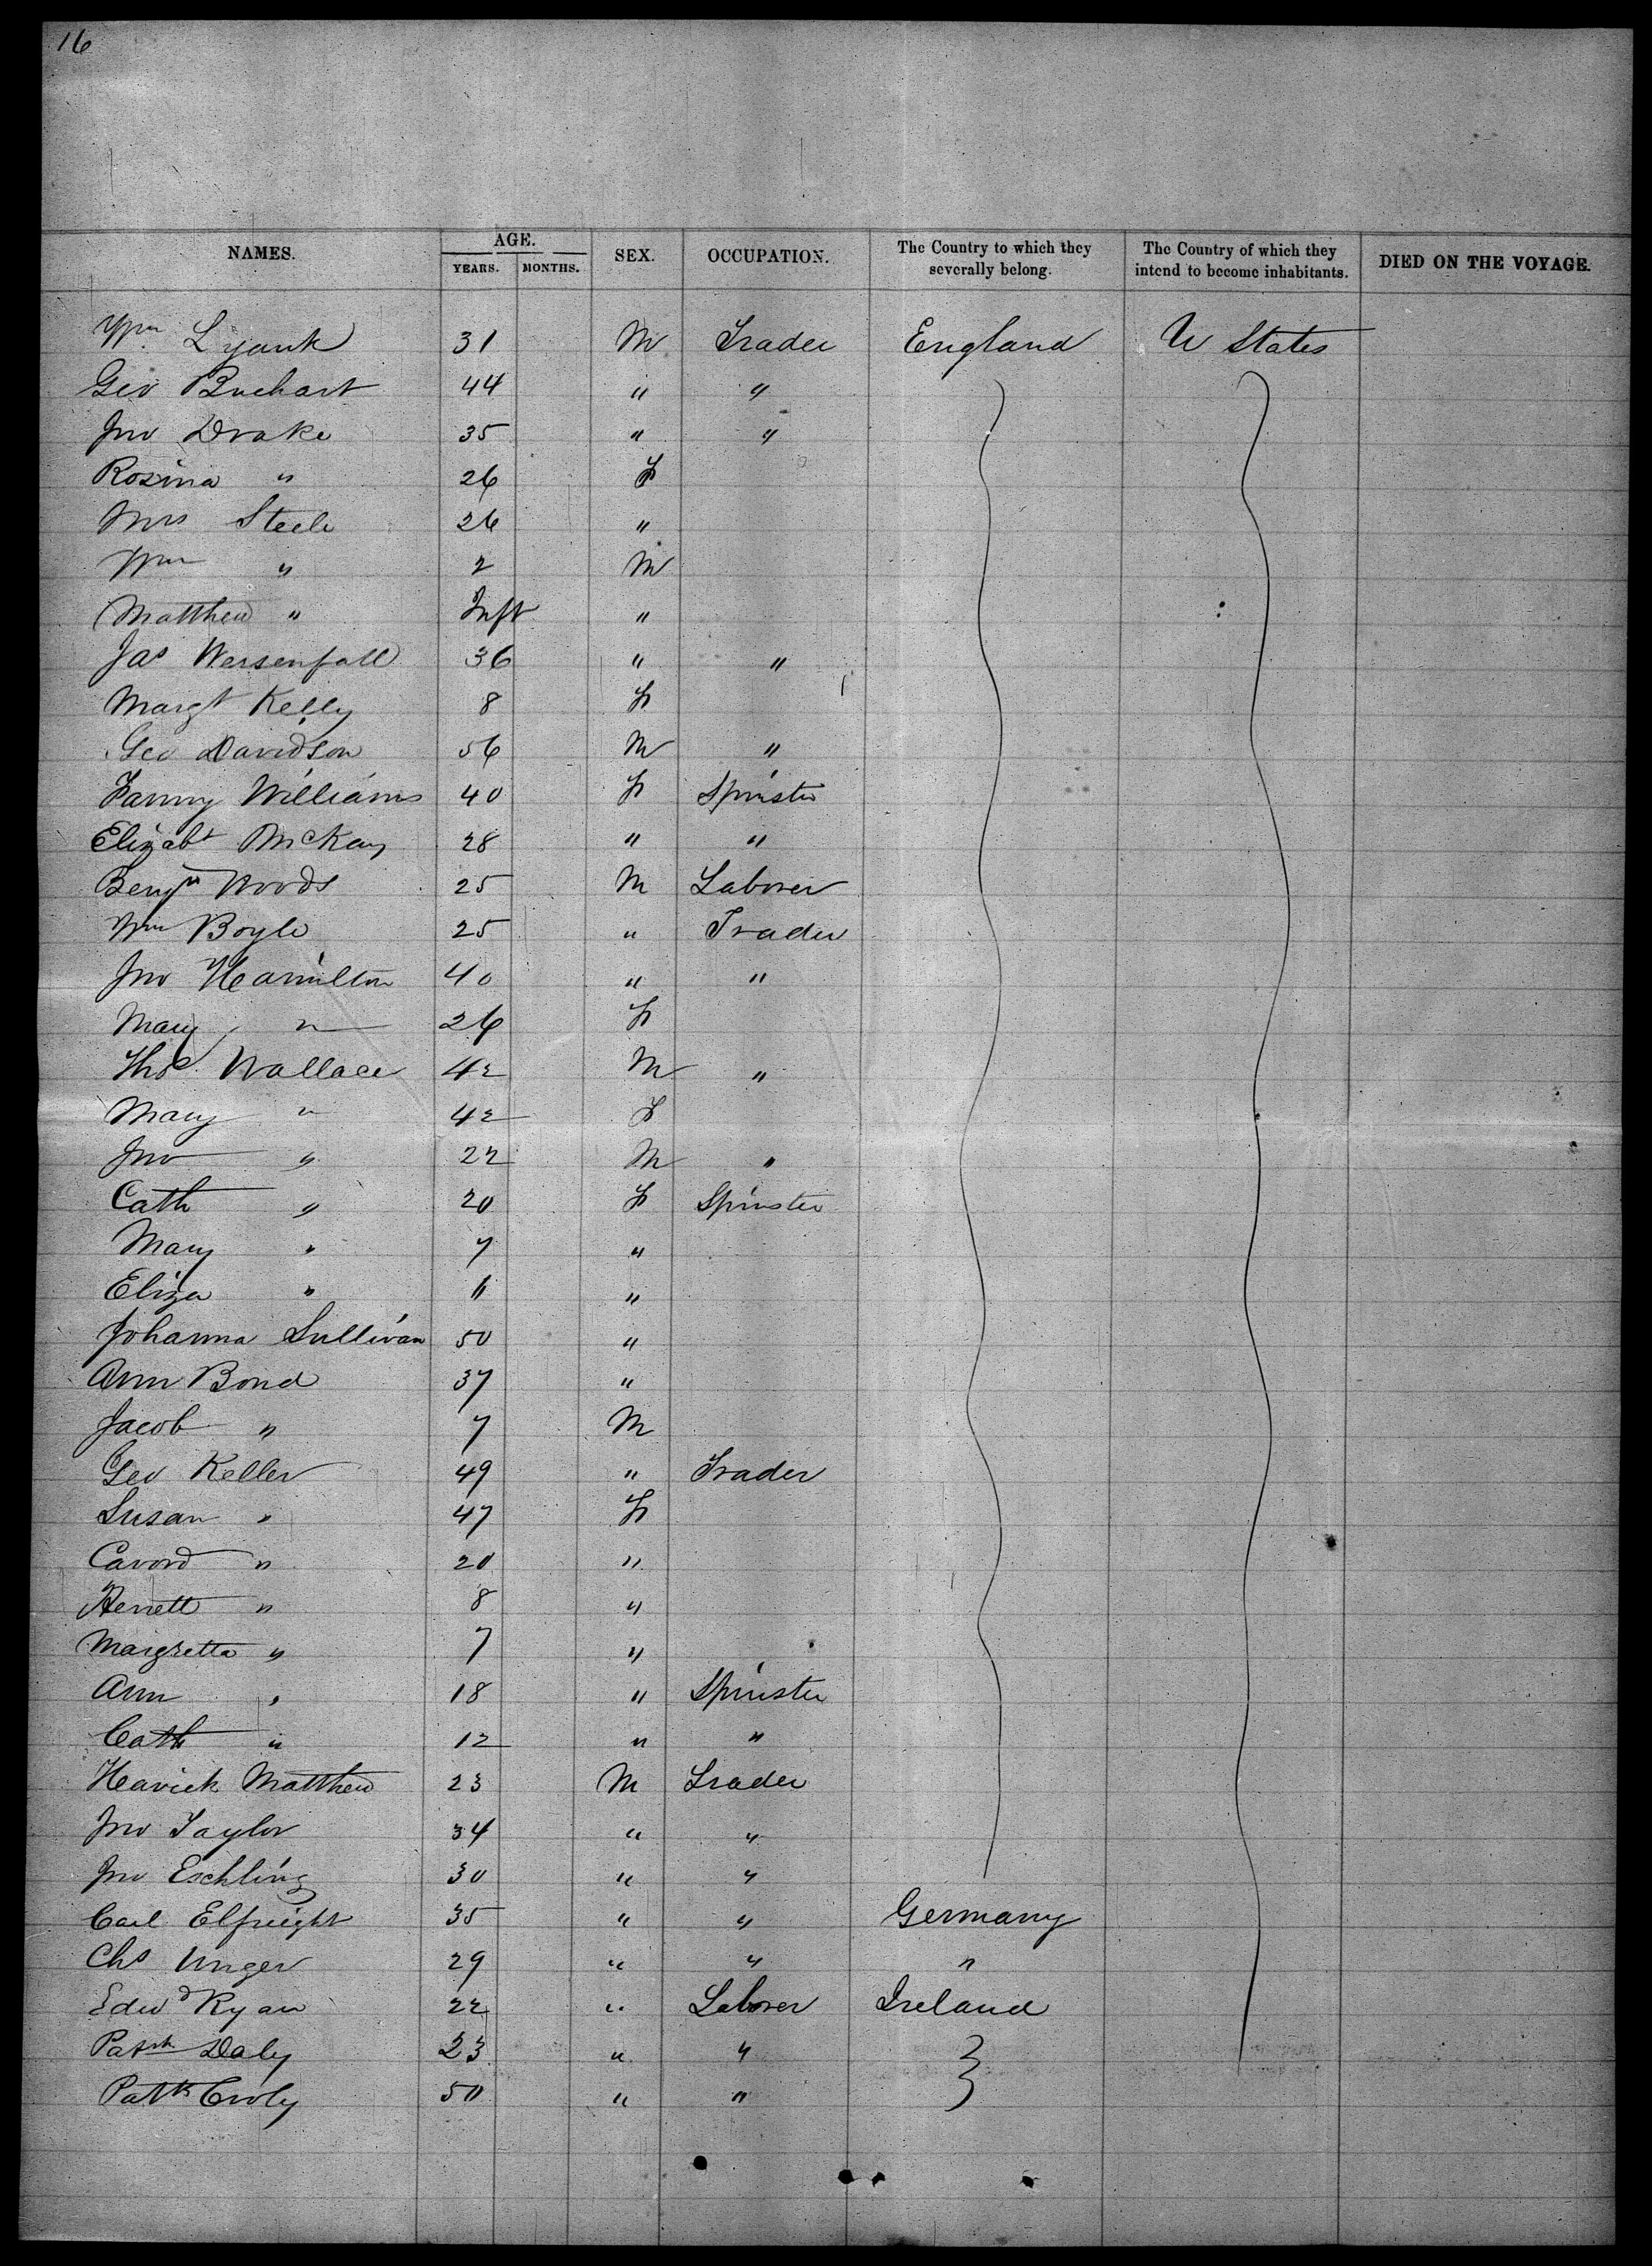 16
NAMES. AGE. YEARS. MONTHS. SEX. OCCUPATION. The Country to which they severally belong. The Country of which they intend to become inhabitants. DIED ON THE VOYAGE.
Wm Lyank 31 M Trader England U States
Geo Buchart 44 " "
Jno Drake 35 " "
Rosina " 26 F
Mrs Steele 26 "
Wm " 2 M
Matthew " Inft "
Jas Wersenfall 36 " "
Margt Kelly 8 F
Geo Davidson 56 M "
Fanny Williams 40 F Spinster
Elizabt McKay 28 " "
Benjn Woods 25 M Laborer
Wm Boyle 25 " Trader
Jno Hamilton 40 " "
Mary " 26 F
Thos Wallace 42 M "
Mary " 42 F
Jno " 22 M "
Cath " 20 F Spinster
Mary " 7 "
Eliza " 11 "
Johanna Sullivan 50 "
Ann Bond 37 "
Jacob " 7 M
Geo Keller 49 " Trader
Susan " 47 F
" 20 "
Henett " 8 "
Margretta " 7 "
Ann " 18 " Spinster
Cath " 12 " "
Havick Matthew 23 M Trader
Jno Taylor 34 " "
Jno Eschling 30 " "
Carl Elfreight 35 " " Germany
Chs Unger 29 " " "
Edwd Ryan 22 " Laborer Ireland
Patrk Daly 23 " "
Patk Croly 50 " "